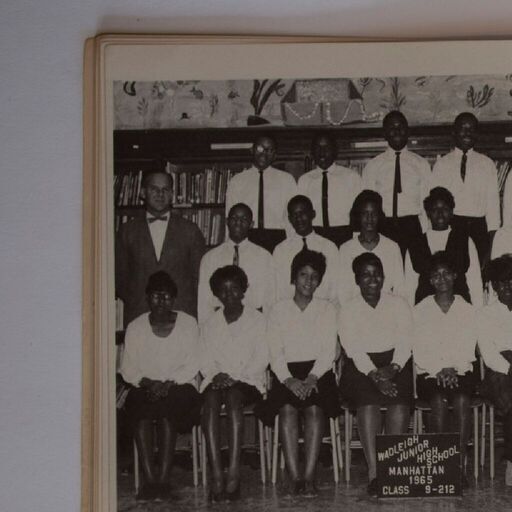 WADLEIGH
JUNIOR HIGH
SCHOOL
MANHATTAN
1965
CLASS 9-212